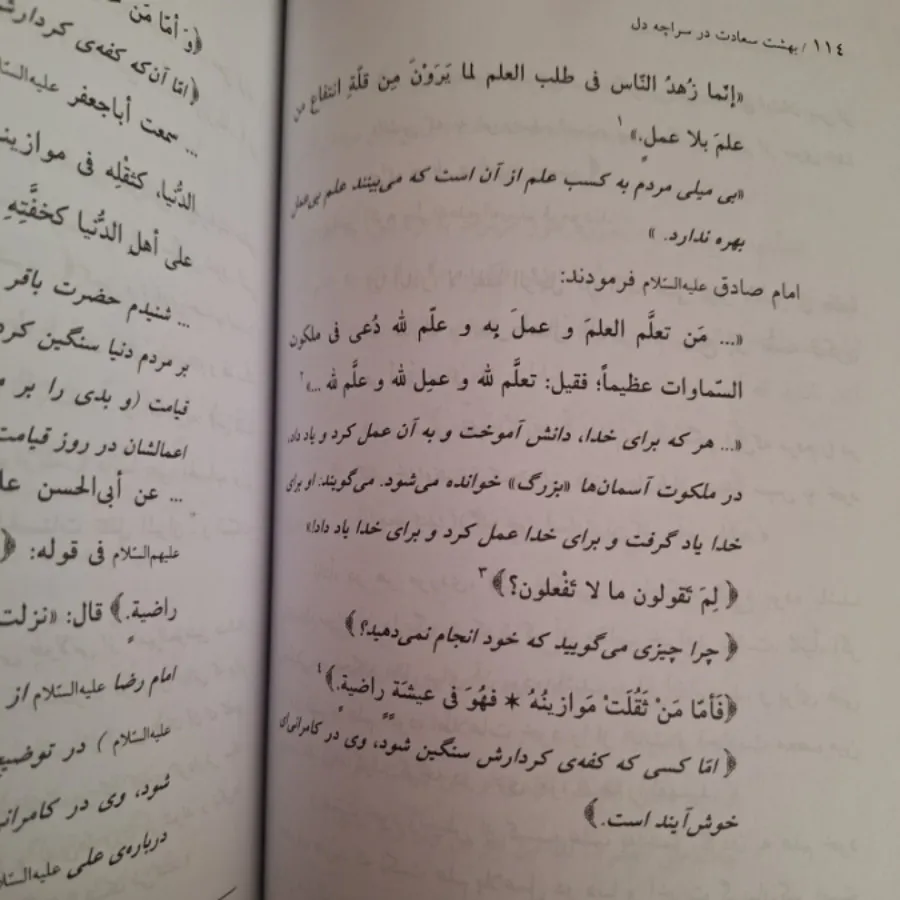 ١١٤ / بهشت سعادت در سراچه دل
«إنّما زُهدُ النّاس فی طلب العلم لما یَرَوْنَ مِن قلّةِ انتفاع من
علمَ بلا عملٍ.» ١
«بی میلی مردم به کسب علم از آن است که می‌بینند علم بی‌عمل
بهره ندارد. »
امام صادق علیه‌السّلام فرمودند:
«... مَن تعلَّم العلمَ و عملَ بِه و علّم لله دُعی فی ملکون
السّماوات عظیماً؛ فقیل: تعلَّم لله و عمِل لله و علَّم لله ...» ٢
«... هر که برای خدا، دانش آموخت و به آن عمل کرد و یاد داد،
در ملکوت آسمان‌ها «بزرگ» خوانده می‌شود. می‌گویند: او برای
خدا یاد گرفت و برای خدا عمل کرد و برای خدا یاد داد!»
﴿ لِمَ تَقولون ما لا تَفْعلون؟﴾ ٣
﴿ چرا چیزی می‌گویید که خود انجام نمی‌دهید؟﴾
﴿فَأمّا مَنْ ثَقُلَتْ مَوازینُهُ * فهُوَ فی عیشَةٍ راضیةٍ.﴾ ٤
﴿ امّا کسی که کفه‌ی کردارش سنگین شود، وی در کامرانی‌ای
خوش‌آیند است.﴾
﴿وَ أمّا مَن
﴿ امّا آن‌که کفه‌ی کردارش
... سمعت أباجعفر علیه‌السّلا
الدُّنیا، کثقْلِه فی موازینه
علی أهلِ الدُّنیا کخفَّتِهِ
... شنیدم حضرت باقر
بر مردم دنیا سنگین کرد
قیامت (و بدی را بر م
اعمالشان در روز قیامت
... عن أبی‌الحسن عل
علیهم‌السّلام فی قوله: ﴿
راضیة.﴾ قال: «نزلت
امام رضا علیه‌السّلام از
علیه‌السّلام ) در توضیح
شود، وی در کامرانی
درباره‌ی علی علیه‌السّلا